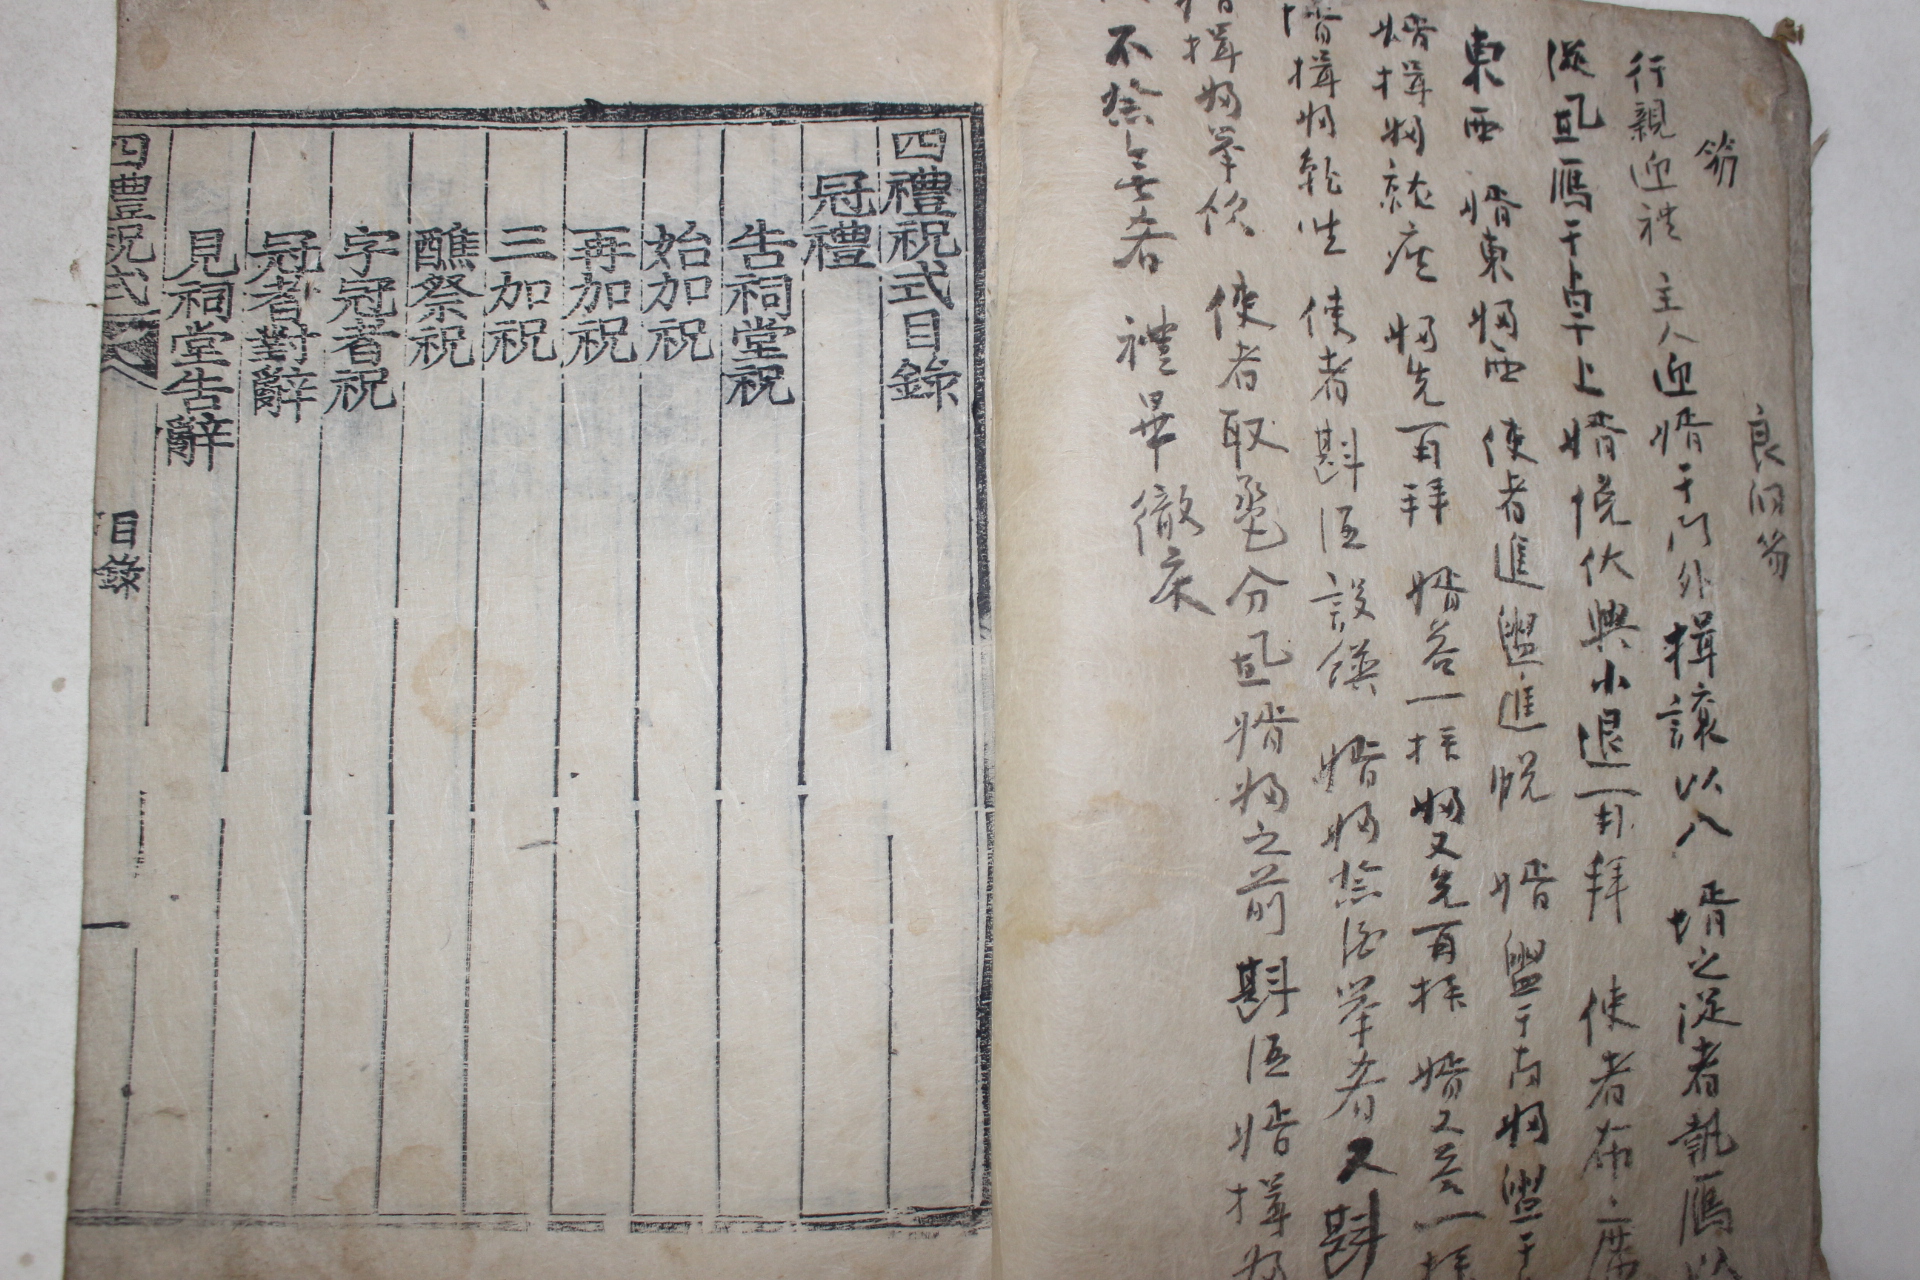 笏
良洞笏
行親迎禮 主人迎婿于門外揖讓以入 婿之從者執鴈以
從 置鴈于卓上 婿俛伏興小退再拜 使者布席
東西 婿東婦西 使者進盥進帨 婿盥于南婦盥于
婿揖婦就座 婦先再拜 婿答一拜婦又先再拜 婿又答一拜
婿揖婦就坐 使者斟酒設饌 婿婦祭酒舉肴 又斟
揖婦舉飮 使者取巹分置婿婦之前斟酒婿揖婦
不祭無肴 禮畢徹床
四禮祝式目錄
冠禮
告祠堂祝
始加祝
再加祝
三加祝
醮祭祝
字冠者祝
冠者對辭
見祠堂告辭
四禮祝式 目錄 一